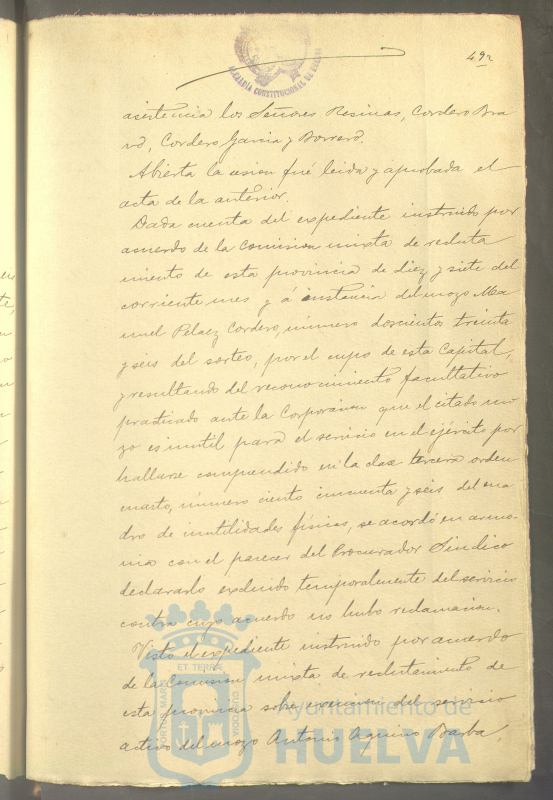 49r
ALCALDÍA CONSTITUCIONAL DE HUELVA
asistencia los Señores Resinas, Cordero Bra
vo, Cordero Garcia y Borrero.
Abierta la sesion fué leida y aprobada el
acta de la anterior.
Dada cuenta del expediente instruido por
acuerdo de la Comision mixta de recluta
miento de esta provincia de diez y siete del
corriente mes y á instancia del mozo Ma
nuel Pelaez Cordero, número doscientos treinta
y seis del sorteo, por el cupo de esta Capital,
y resultando del reconocimiento facultativo
practicado ante la Corporacion que el citado mo
zo es inutil para el servicio en el ejército por
hallarse comprendido en la clase tercera orden
cuarto, número ciento cincuenta y seis del cua
dro de inutilidades físicas, se acordó en armo-
nia con el parecer del Procurador Sindico
declararlo excluido temporalmente del servicio
contra cuyo acuerdo no hubo reclamacion.
Visto el expediente instruido por acuerdo
de la Comision mixta de reclutamiento de
esta provincia sobre exencion del servicio
activo del mozo Antonio Aquino Barba,
PORTUS MARIS
ET TERRÆ
CUSTODIA
Ayuntamiento de
HUELVA